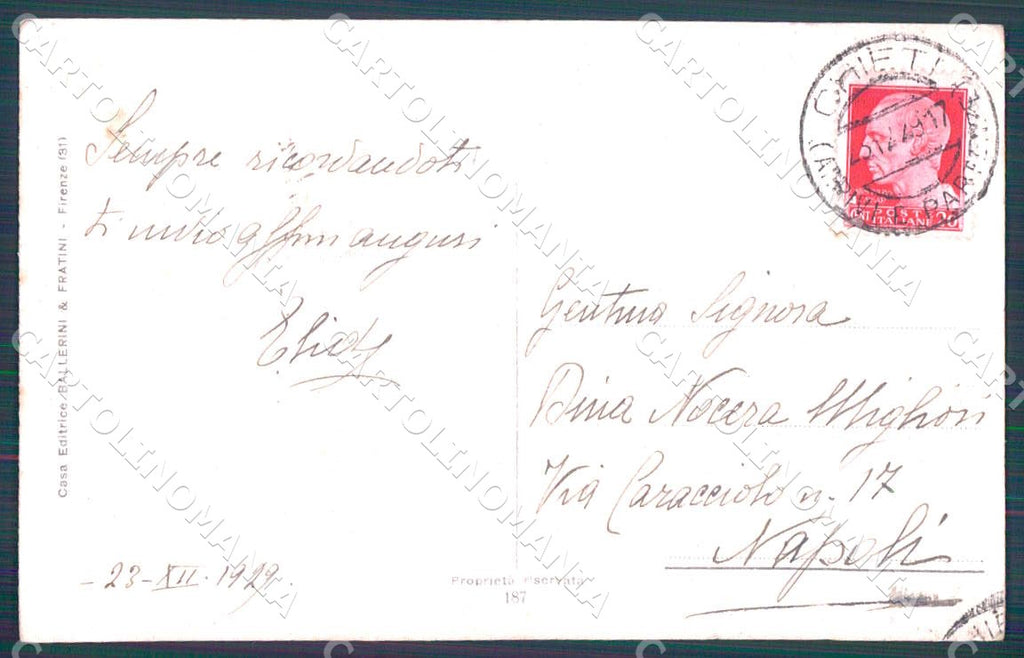 Casa Editrice BALLERINI & FRATINI - Firenze (31)
Sempre ricordandoti
ti invio affmi auguri
- 23 - XII. 1929.
Proprietà riservata
187
CHIETI
POSTE
ITALIANE 20
Gentma Signora
Dina Nocera Migliori
Via Caracciolo n. 17
Napoli
CARTOLINOMANIA